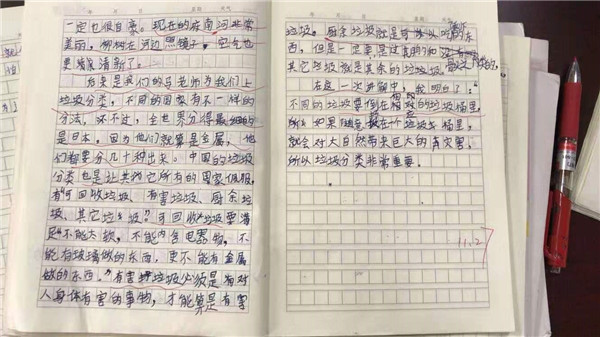 一定也很自豪。现在的府南河非常
美丽，柳树在河边照镜子，空气也
更清新了。
后来是我们的马老师为我们上
垃圾分类，不同的国家有不一样的
分法，
是日本，因为他们就算是金属，他
们都要分几十种出来。中国的垃圾
分类也是让其他所有的国家佩服，
有“可回收垃圾、有害垃圾、厨余垃
圾、其它垃圾”可回收垃圾要满
足“不能太软，不能内含电器物，不
能有玻璃做的东西，更不能有金属
做的东西。”有害垃圾必须是有对
人身体有害的事物，才能算是有害
垃圾。厨余垃圾就是可以吃的东
西，但是一定要是过期的和
其它垃圾就是其余的垃圾。
在这一次讲解中，我明白了：
不同的垃圾要倒在相应的垃圾桶里，
如果随意扔在一个垃圾桶里，
就会对大自然带来巨大的灾害，
所以垃圾分类非常重要。
11.2